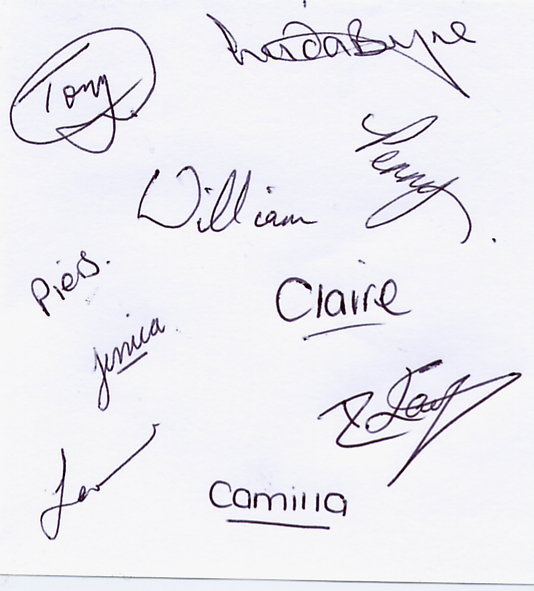 Tony
Linda Byrne
Penny
William
Piers.
Claire
Jessica
Camilla